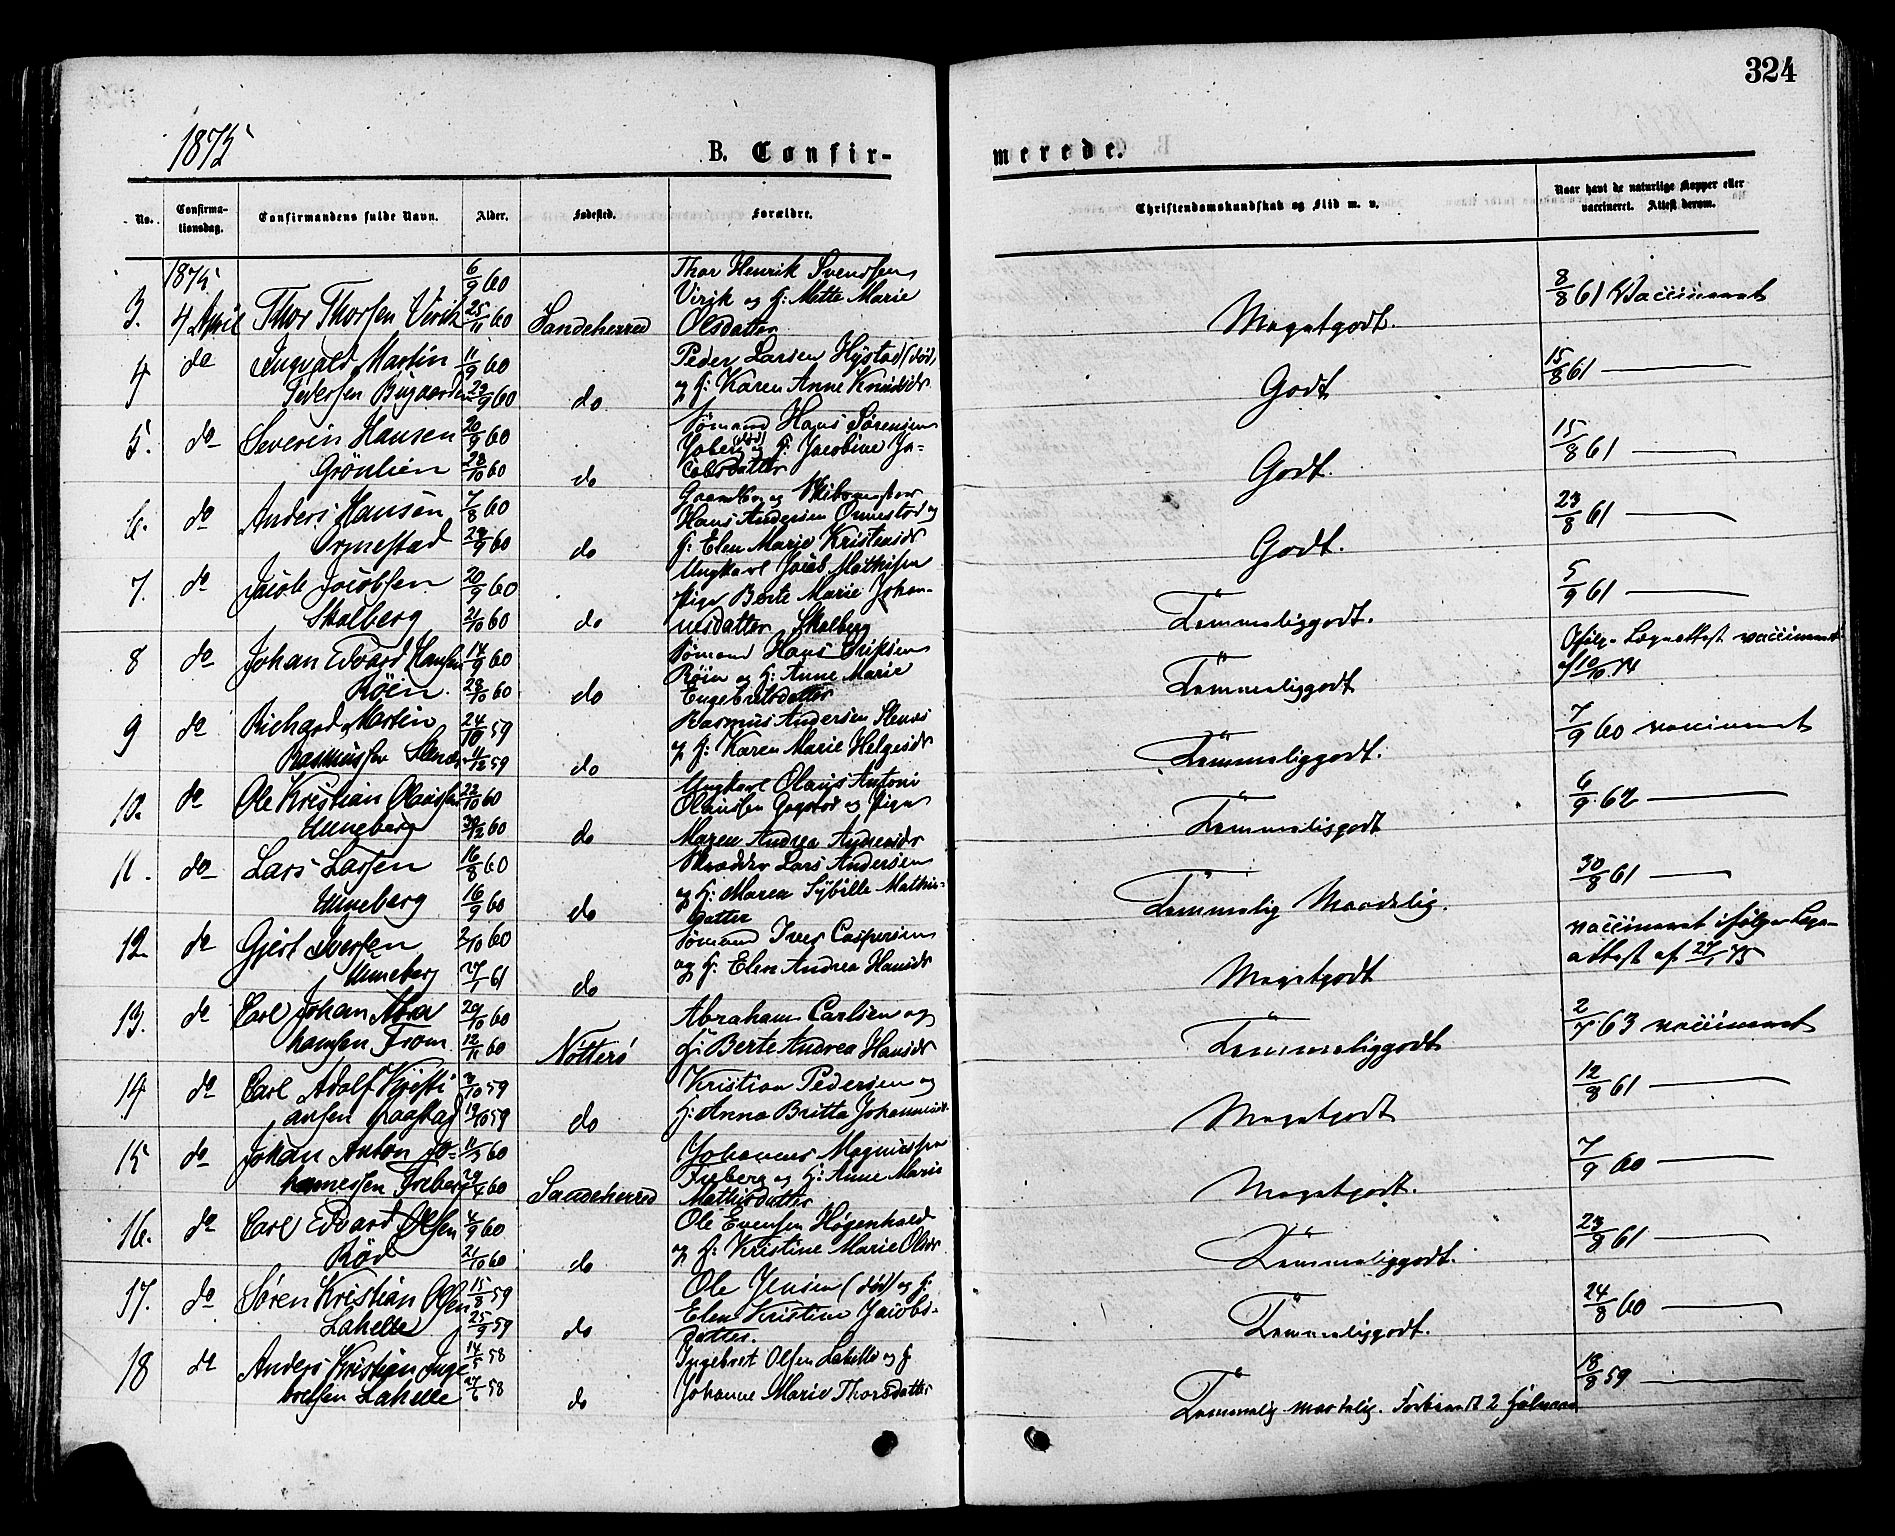 324
1875
B. Confir-
merede.
No.
Confirma-
tionsdag.
Confirmandens fulde Navn.
Alder.
Fødested.
Forældre.
Christendomskundskab og Flid m. v.
Naar havt de naturlige Kopper eller
vaccineret. Attest derom.
1875
3. 4 April Thor Thorsen Virik 6/9 60 25/11 60 Sandeherred
Thor Henrik Svendsen
Virik og H: Mette Marie
Olsdatter
Megetgodt. 8/8 61 Vaccineret
4 do Ingvald Martin 11/9 60
Pedersen Bugaarden 29/9 60 do
Peder Larsen Hystad (død)
og H: Karen Anne Knudsdr
Godt 15/8 61
5. do Severin Hansen 20/9 60
Grönlien 28/10 60 do
Sømand Hans Sørensen
(død) og H: Jacobine Ja-
cobsdatter
Godt. 15/8 61
6. do Anders Hansen 7/8 60
Ormestad 23/9 60 do
Gaardbr og
Hans Andersen Ormestad og
H: Elen Marie Kristensdr
Godt. 23/8 61
7. do Jacob Jacobsen 20/9 60
Skalberg 21/10 60 do
Ungkarl Jacob Mathisen
Pige Berte Marie Johan-
nesdatter Skalberg
Temmeliggodt. 5/9 61
8 do Johan Edvard Hansen 14/9 60
Röen 28/10 60 do
Sømand Hans Eriksen
Röen og H: Anne Marie
Engebretsdatter
Temmeliggodt
Ifølge Lægeattest vaccineret
af 10/10 74
9 do Richard Martin 24/10 59
Rasmussen Slenes 11/12 59 do
Rasmus Andersen Slenes
og H: Karen Marie Helgesdr
Temmeliggodt. 7/9 60 vaccineret
10. do Ole Kristian Olaussen 22/10 60
Unneberg 30/12 60 do
Ungkarl Olaus Antoni
Olaussen Gogstad og Pige
Maren Andrea Andersdr
Temmeliggodt 6/9 62
11. do Lars Larsen 16/8 60
Unneberg 16/9 60 do
Skrædder Lars Andersen
og H: Maren Sybille Mathis-
datter
Temmelig Maadelig. 30/8 61
12. do Gjert Iversen 2/10 60
Unneberg 27/1 61 do
Sømand Iver Caspersen
og H: Elen Andrea Hansdr
Megetgodt
vaccineret ifølge Læge-
attest af 27/1 75
13. do Carl Johan Abra
hamsen From 29/10 60 12/11 60 Nötterö
Abraham Carlsen og
H: Berte Andrea Hansdr
Temmeliggodt 2/7 63 vaccineret
14 do Carl Adolf Kristi
ansen Raastad 3/10 59 19/10 59 do
Kristian Pedersen og
H: Anna Britta Johannesdr
Megetgodt 12/8 61
15 do Johan Anton Jo-
hannessen Freberg 11/3 60 29/4 60 Sandeherred
Johannes Magnussen
Freberg og H: Anne Marie
Mathisdatter
Megetgodt. 7/9 60
16. do Carl Edvard Olsen 4/9 60
Röd 21/10 60 do
Ole Evensen Högenhald
og H: Kristine Marie Olsdr
Temmeliggodt. 23/8 61
17. do Søren Kristian Olsen 15/8 59
Lahelle 25/9 59 do
Ole Jensen (død) og H:
Elen Kristine Jacobs-
datter.
Temmeliggodt. 24/8 60
18 do Anders Kristian Inge
bretsen Lahelle 14/5 58 27/6 58 do
Ingebret Olsen Lahelle og H
Johanne Marie Thorsdatter
Temmelig maadelig. 18/8 59